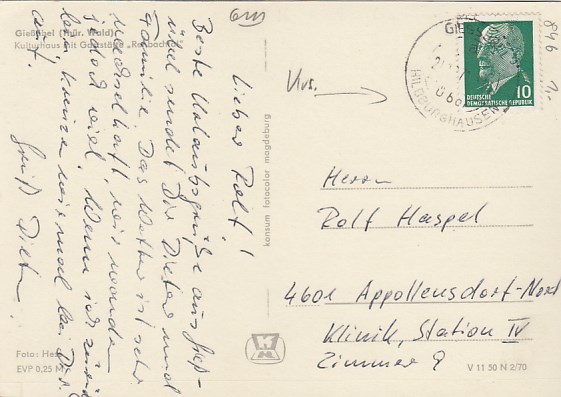 Gießübel (Thür. Wald)
Kulturhaus mit Gaststätte
Lieber Rolf!
Beste Urlaubsgrüße aus Gieß-
übel sendet Dir Dieter und
Familie. Das Wetter ist sehr
wir wandern
jedoch viel. Wenn wir zurück
mal bei Dir
Gruß Dieter
konsum fotocolor magdeburg
Foto: He
EVP 0,25 M
GIESS
HILDBURGHAUSEN
DEUTSCHE
DEMOKRATISCHE REPUBLIK
10
846
Herrn
Rolf Haspel
4601 Appollensdorf-Nord
Klinik, Station IV
Zimmer 9
V 11 50 N 2/70